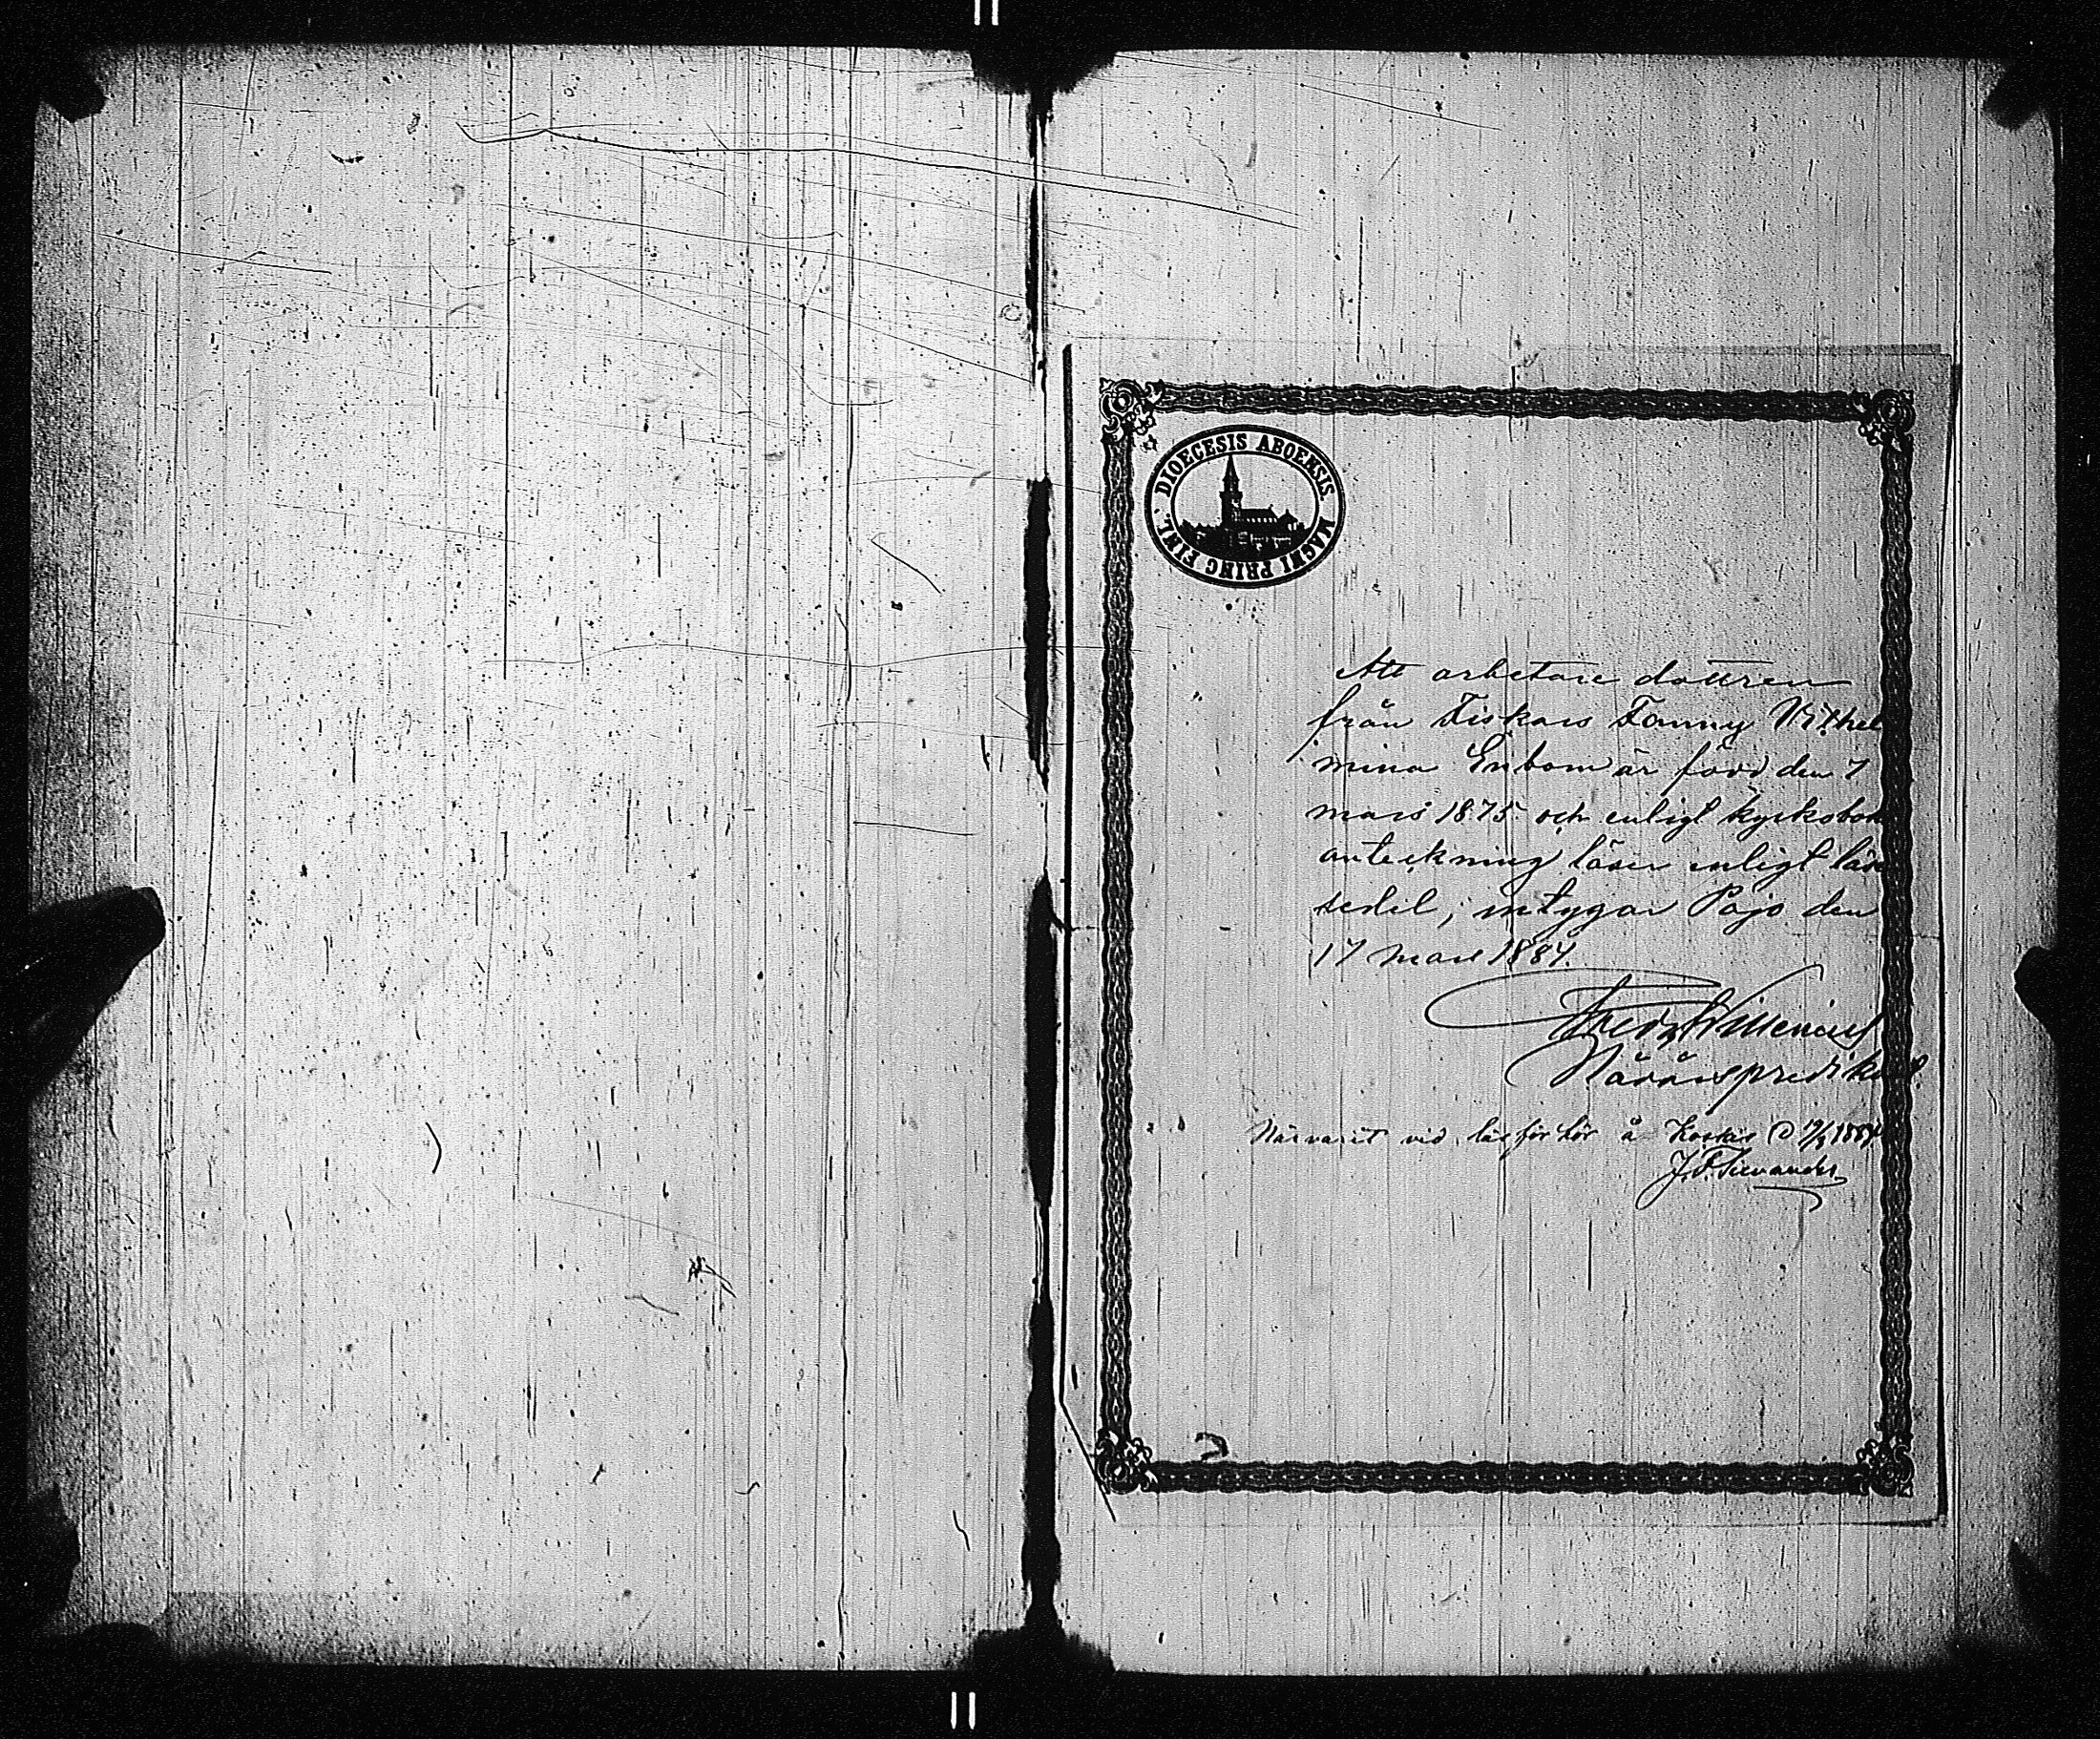 DIOECESIS ABOENSIS. MAGNI PRINC FINL.
Att arbetare dottren
från Fiskars Fanny Vilhel
mina Enbom är född den 7
mars 1875 och enligt kyrkobok
anteckning läser enligt läse
sedel; intygar Pojo den
17 mars 1884.
Nådårspredikant.
Närvarit vid läsförhör å Koskis D 19/3 1884